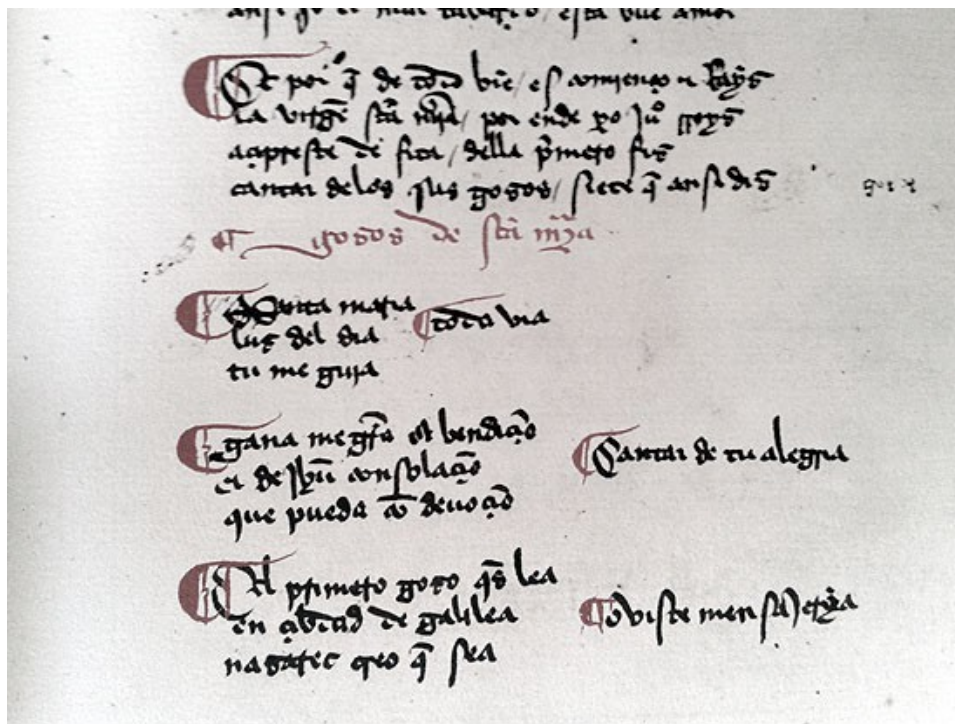 Et por q̃ de todo bie͂ / es comienço e Rayz
la virge͂ sta͂ mͣia / por ende yo Juº rroyz
açipreste de fita / della p͂mero fiz
cantar delos sus gozos / siete q̃ ansi diz
gozos de sta͂ mͣia
Santa maria
luz del dia
tu me guia
toda via
gana me gr͂a et bendiçio͂
et de Jhu͂ consolaçio͂
que pueda co͂ deuoçio͂
Cantar de tu alegria
El primero gozo q̃s lea
en çibdad de galilea
nazaret creo q̃ sea
oviste mensajeria